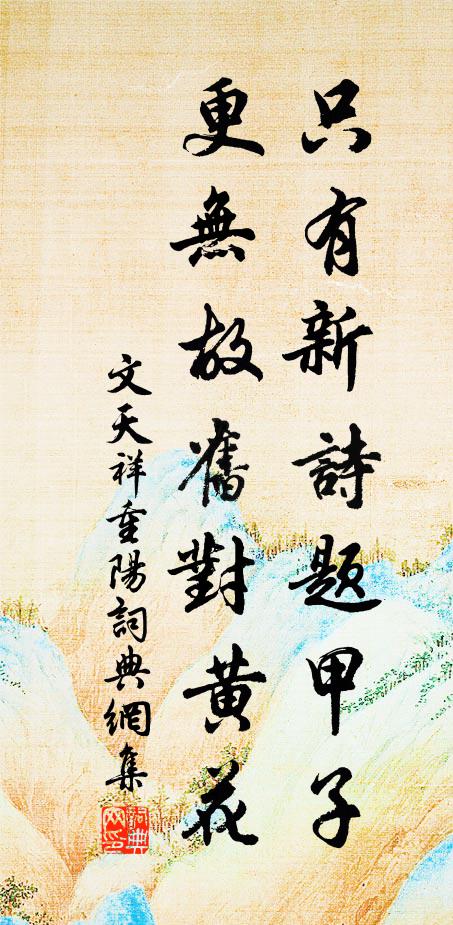 只有新詩題甲子
更無故舊對黃花
文天祥重陽詞典網集
詞典網印